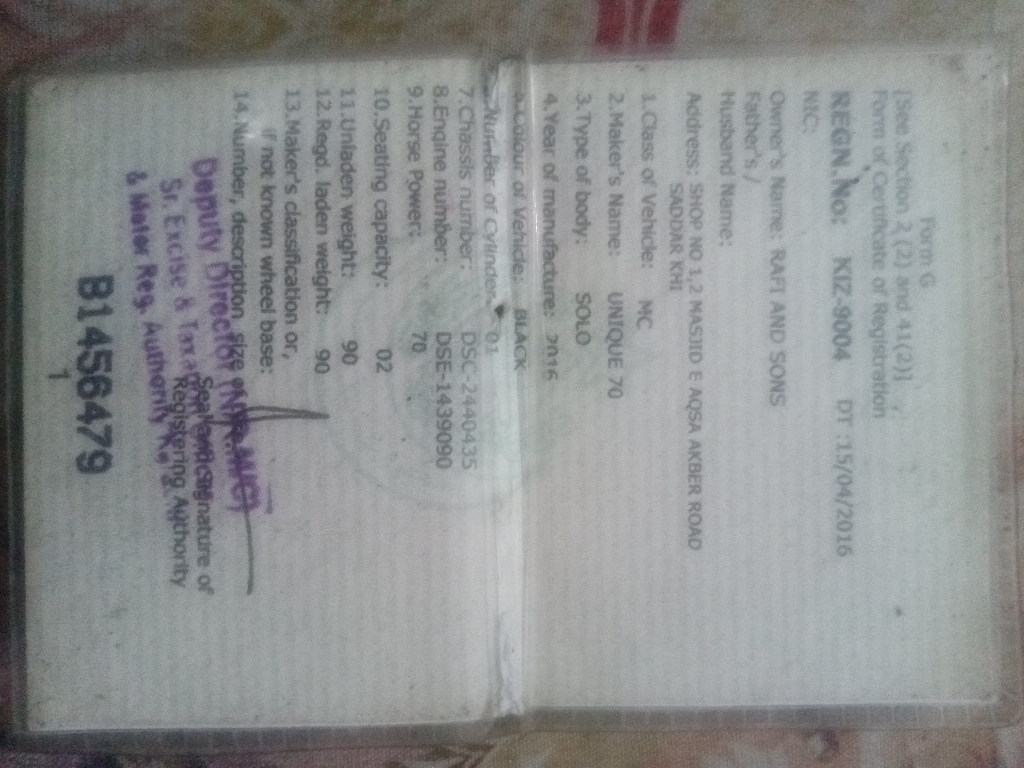 Form G
[See Section 2 (2) and 41(2)]
Form of Certificate of Registration
REGN.No: KIZ-9004 DT :15/04/2016
NIC:
Owner's Name: RAFI AND SONS
Father's /
Husband Name:
Address: SHOP NO 1,2 MASJID E AQSA AKBER ROAD
SADDAR KHI
1.Class of Vehicle: MC
2.Maker's Name: UNIQUE 70
3.Type of body: SOLO
4.Year of manufacture: 2016
5.Colour of Vehicle: BLACK
Number of Cylinder: 01
7.Chassis number: DSC-2440435
8.Engine number: DSE-1439090
9.Horse Power: 70
10.Seating capacity: 02
11.Unladen weight: 90
12.Regd. laden weight: 90
13.Maker's classification or,
if not known wheel base:
14.Number, description, size of
Seal and Signature of
Registering Authority
Deputy Director
Sr. Excise & Taxation
& Motor Reg. Authority
B1456479
1